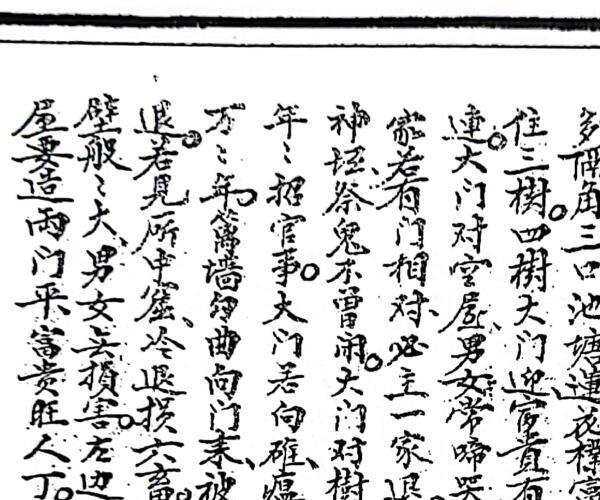 多隅角三口池塘蓮花標富
住三樹四樹大门迎富貴有
連大门对空屋男女常啼哭
家若有门相对必主一家退
神坛祭鬼不曾闲大门对樹
年〻招官事大门若向碓瘟
万〻年篱墙曲向门来被
退若見所中窟冷退损六畜
壁般〻大男女無損害左边
屋要造两门平富贵旺人丁